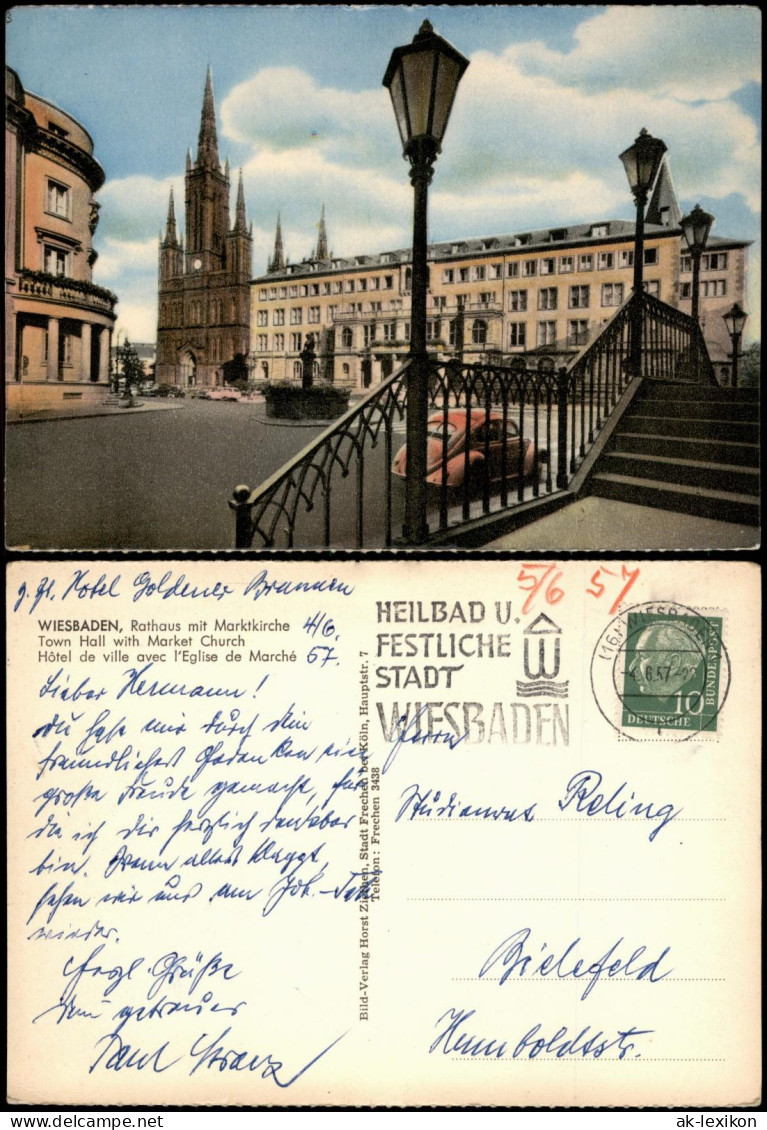 z. Zt. Hotel Goldener Brunnen
WIESBADEN, Rathaus mit Marktkirche
Town Hall with Market Church
Hôtel de ville avec l'Eglise de Marché
4/6.
57.
Lieber Hermann!
Du hast mir durch Dein
freundliches Gedenken eine
große Freude gemacht, für
die ich Dir herzlich dankbar
bin. Wenn alles klappt,
sehen wir uns am Joh.
wieder.
Herzl. Grüße
Dein getreuer
Paul
Bild-Verlag Horst Ziethen, Stadt Frechen bei Köln, Hauptstr. 7
Telefon: Frechen 3438
5/6 57
HEILBAD U.
FESTLICHE
STADT
WIESBADEN
(16) WIESBADEN
-4.6.57
10
DEUTSCHE
BUNDESPOST
Herrn
Studienrat Reling
Bielefeld
Humboldtstr.
ak-lexikon
ak-lexikon.com